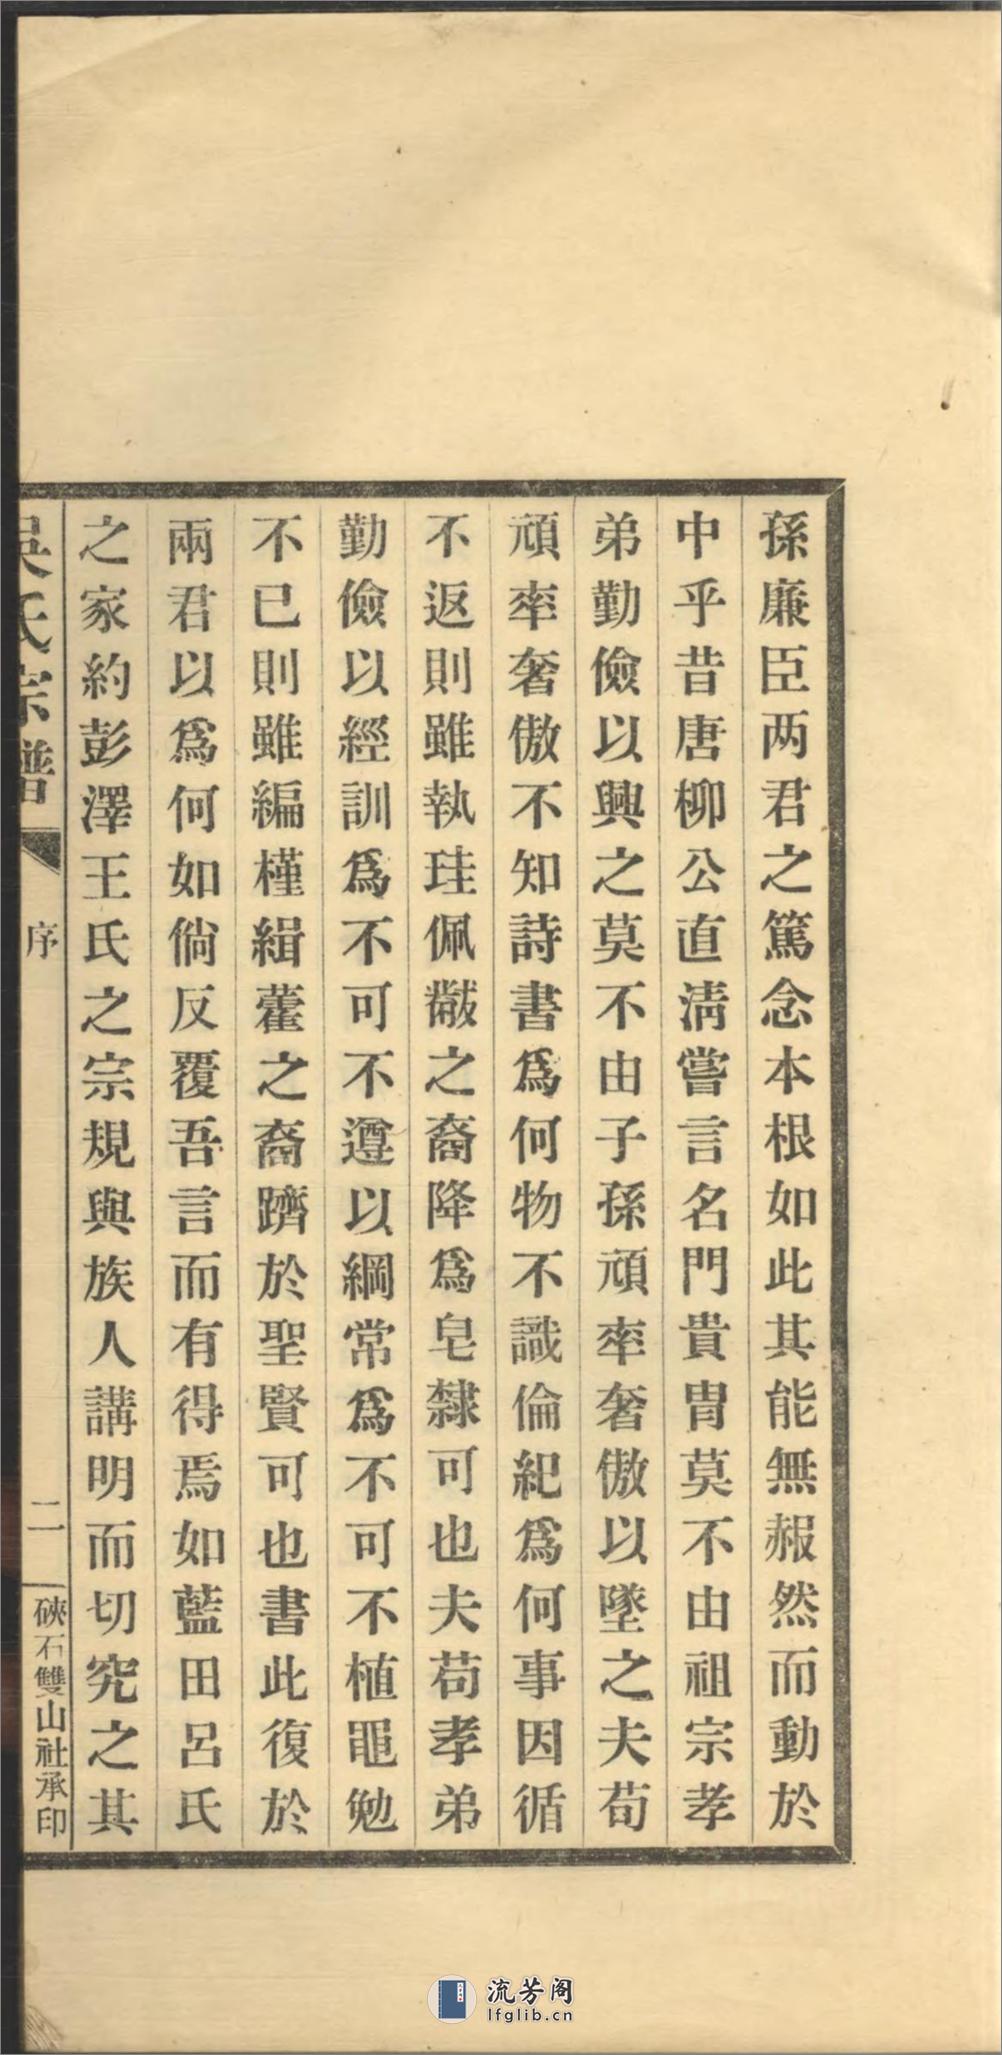 孫廉臣两君之篤念本根如此其能無赧然而動於
中乎昔唐柳公直淸嘗言名門貴胄莫不由祖宗孝
弟勤儉以興之莫不由子孫頑率奢傲以墜之夫苟
頑率奢傲不知詩書爲何物不識倫紀爲何事因循
不返則雖執珪佩黻之裔降爲皂隸可也夫苟孝弟
勤儉以經訓爲不可不遵以綱常爲不可不植黽勉
不已則雖編槿緝藿之裔躋於聖賢可也書此復於
兩君以爲何如倘反覆吾言而有得焉如藍田呂氏
之家約彭澤王氏之宗規與族人講明而切究之其
吳氏宗譜
序
二
硤石雙山社承印
流芳阁
lfglib.cn